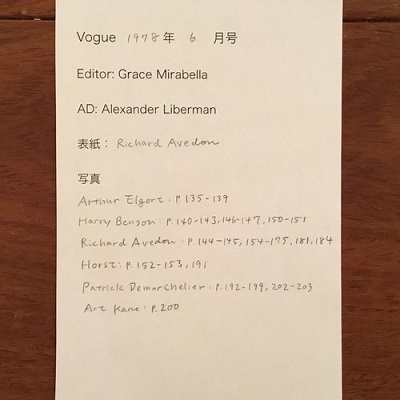 Vogue 1978年 6 月号
Editor: Grace Mirabella
AD: Alexander Liberman
表紙： Richard Avedon
写真
Arthur Elgort : P.135-139
Harry Benson : p.140-143, 146-147, 150-151
Richard Avedon : p.144-145, 154-175, 181, 184
Horst : p.152-153, 191
Patrick Demarchelier : p.192-199, 202-203
Art Kane : p.200